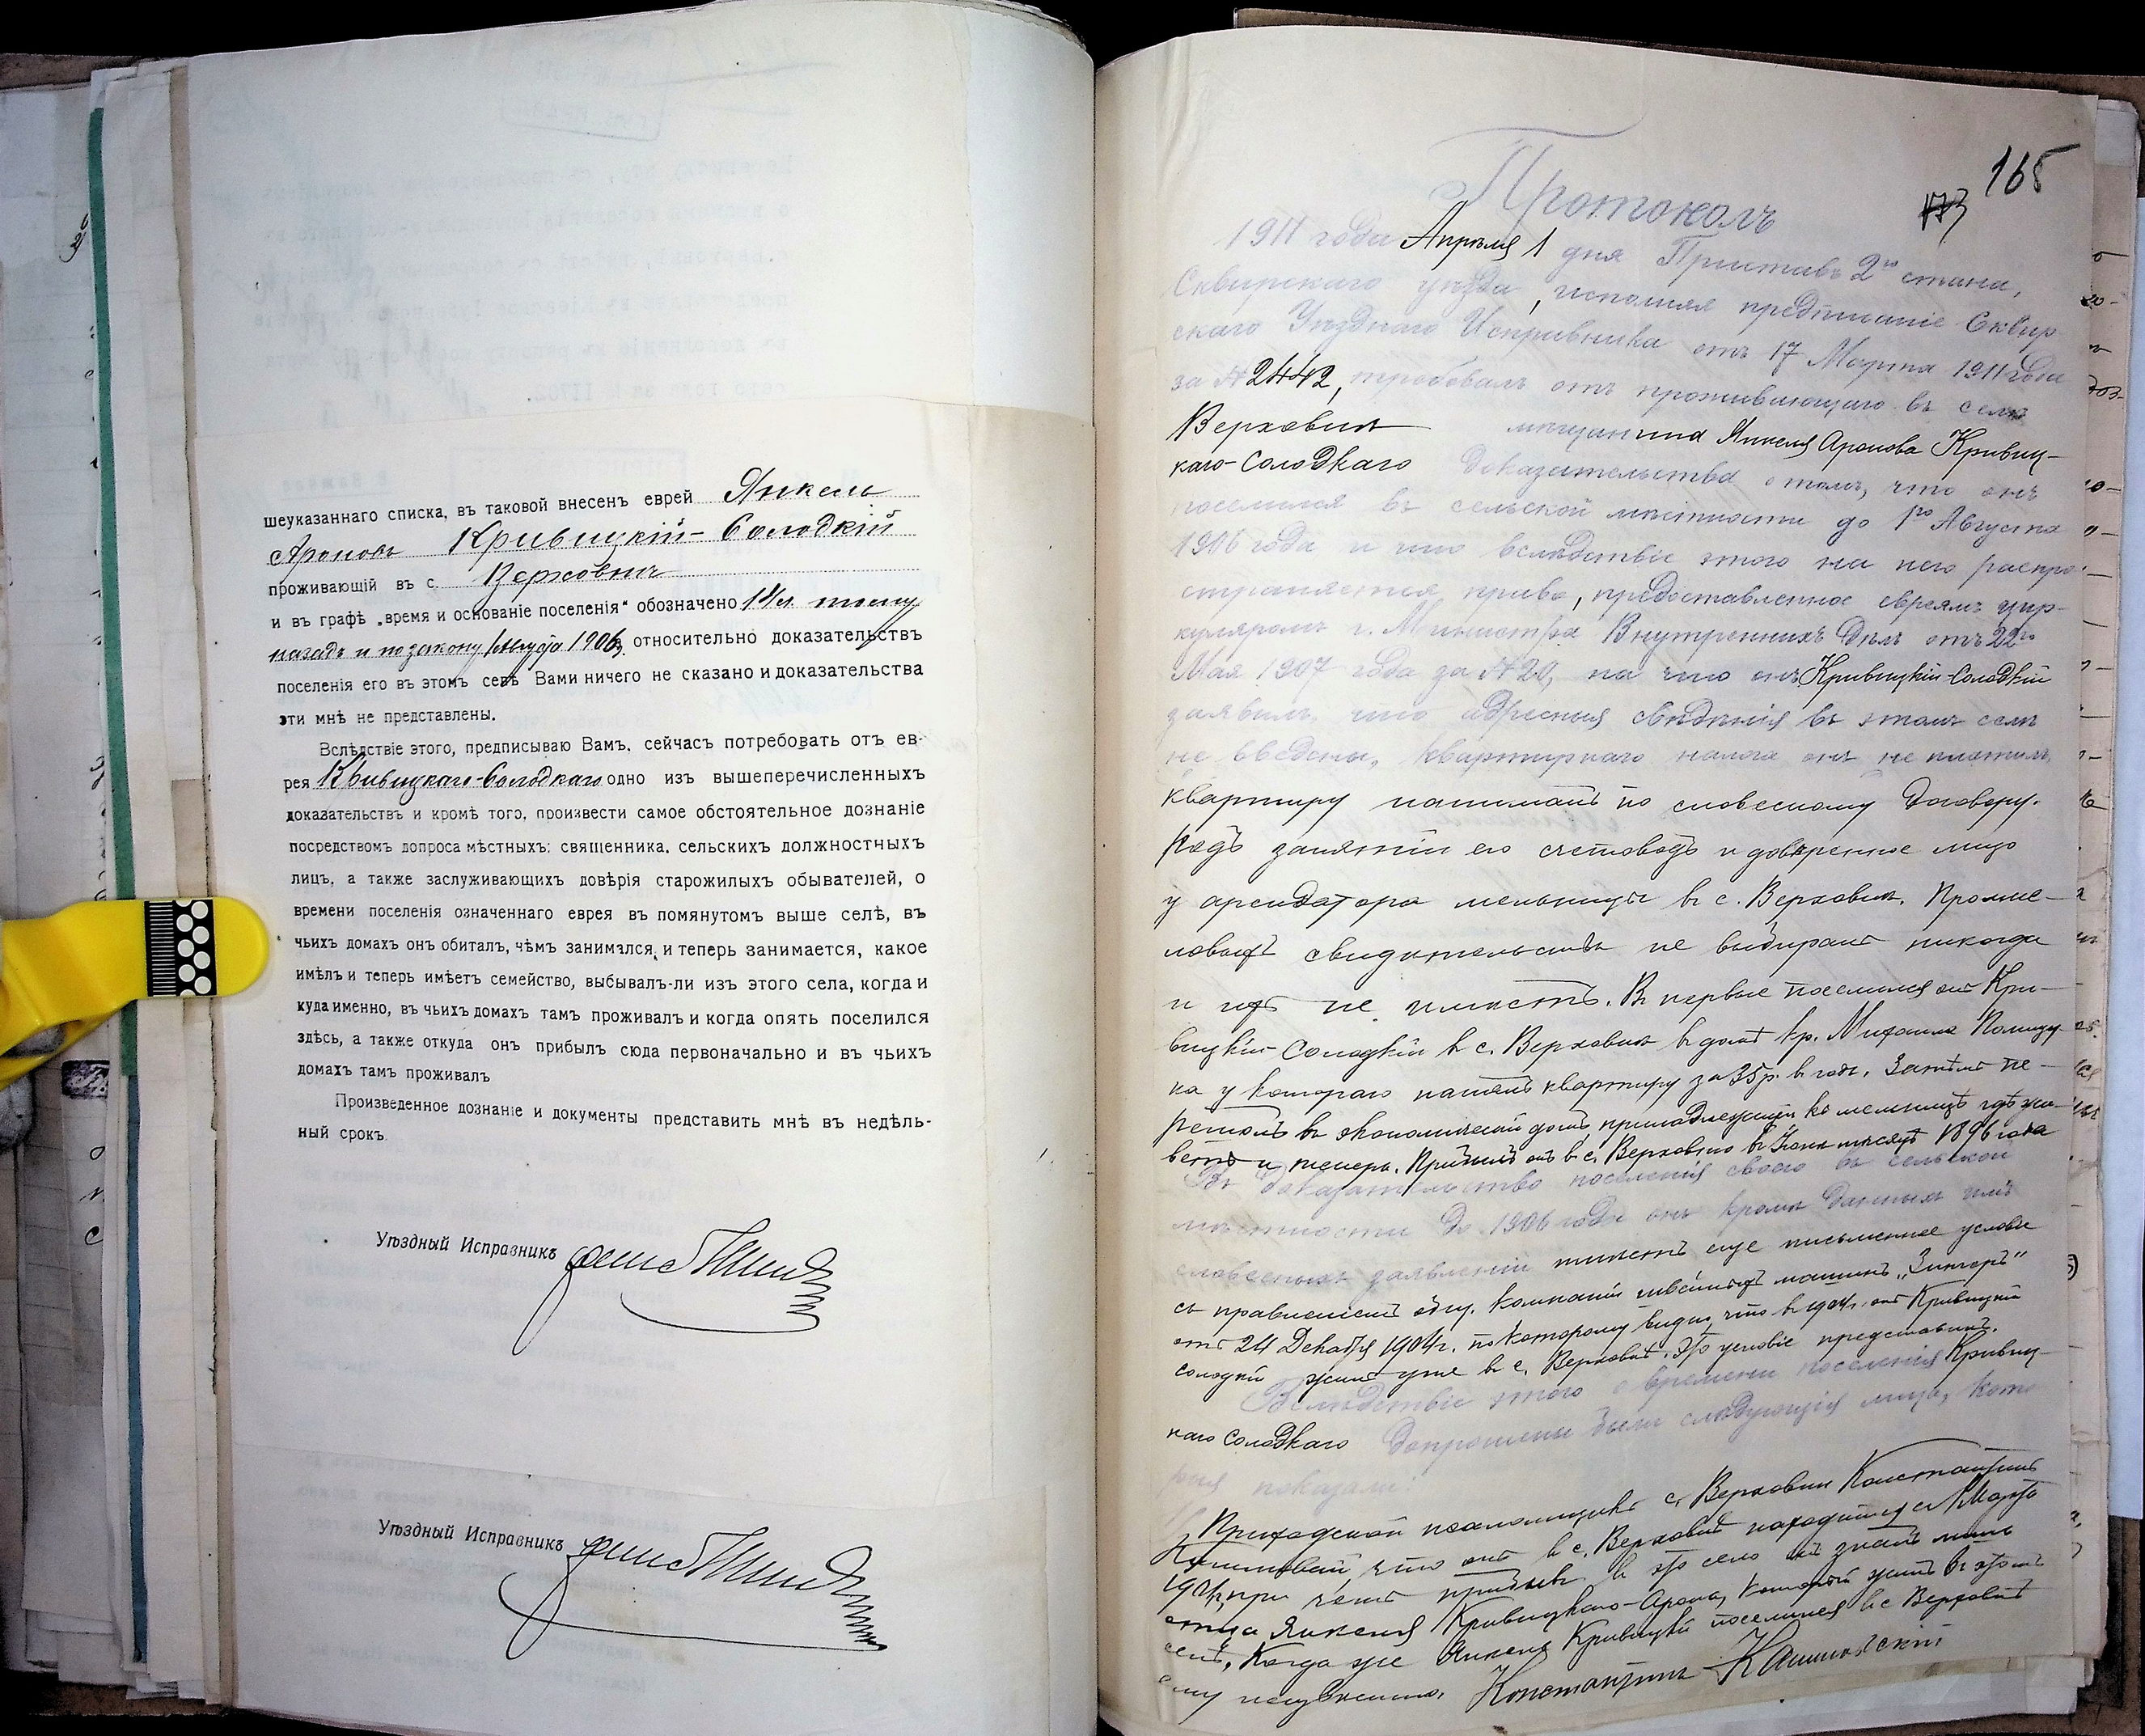 шеуказаннаго списка, въ таковой внесенъ еврей Янкель
Ароновъ Кривицкій-Солодкій
проживающій въ с. Верховнѣ
и въ графѣ „время и основаніе поселенія“ обозначено 14 л. тому
назадъ и по закону 1 Августа 1906 г. относительно доказательствъ
поселенія его въ этомъ селѣ Вами ничего не сказано и доказательства
эти мнѣ не представлены.
Вслѣдствіе этого, предписываю Вамъ, сейчасъ потребовать отъ ев-
рея Кривицкаго-Солодкаго одно изъ вышеперечисленныхъ
доказательствъ и кромѣ того, произвести самое обстоятельное дознаніе
посредствомъ допроса мѣстныхъ: священника, сельскихъ должностныхъ
лицъ, а также заслуживающихъ довѣрія старожилыхъ обывателей, о
времени поселенія означеннаго еврея въ помянутомъ выше селѣ, въ
чьихъ домахъ онъ обиталъ, чѣмъ занимался, и теперь занимается, какое
имѣлъ и теперь имѣетъ семейство, выбывалъ-ли изъ этого села, когда и
куда именно, въ чьихъ домахъ тамъ проживалъ и когда опять поселился
здѣсь, а также откуда онъ прибылъ сюда первоначально и въ чьихъ
домахъ тамъ проживалъ
Произведенное дознаніе и документы представить мнѣ въ недѣль-
ный срокъ.
Уѣздный Исправникъ
Уѣздный Исправникъ
165
173
Протоколъ
1911 года Апрѣля 1 дня Приставъ 2го стана,
Сквирскаго уѣзда, исполняя предписаніе Сквир
скаго Уѣзднаго Исправника отъ 17 Марта 1911 года
за № 2442, требовалъ отъ проживающаго въ селѣ
Верховнѣ мѣщанина Янкеля Аронова Кривиц-
каго-Солодкаго доказательства о томъ, что онъ
поселился въ сельской мѣстности до 1го Августа
1906 года и что вслѣдствіе этого на него распро
страняется право, предоставленное евреямъ цир-
куляромъ г. Министра Внутреннихъ Дѣлъ отъ 22го
Мая 1907 года за № 20, на что онъ Кривицкій-Солодкій
заявилъ, что адресныя свѣдѣнія въ этомъ селѣ
не введены, квартирнаго налога онъ не платилъ,
квартиру нанималъ по словесному договору.
Родъ занятій его счетоводъ и довѣренное лицо
у арендатора мельницы въ с. Верховнѣ. Промыс-
ловыхъ свидѣтельствъ не выбиралъ никогда
и ихъ не имѣетъ. В первые поселился онъ Кри-
вицкій-Солодкій въ с. Верховнѣ въ домѣ кр. Михаила
ка у котораго нанялъ квартиру за 35 р. въ годъ. Затѣмъ пе-
решолъ въ экономическій домъ принадлежащій къ мельницѣ гдѣ жи-
ветъ и теперь. Прибылъ онъ въ с. Верховню въ Іюнѣ мѣсяцѣ 1896 года
Въ доказательство поселенія своего въ сельской
мѣстности до 1906 года онъ кромѣ данныхъ имъ
словесныхъ заявленій имѣетъ еще письменное условіе
съ правленіемъ компаніи швейныхъ машинъ „Зингеръ“
отъ 24 Декабря 1904 г. по которому видно, что въ 1904 г. онъ Кривицкій
Солодкій жилъ уже въ с. Верховнѣ. Это условіе представилъ.
Вслѣдствіе этого о времени поселенія Кривиц-
каго Солодкаго допрошены были слѣдующія лица, кото
рыя показали:
Приходской псаломщикъ с. Верховни Константинъ
что онъ въ с. Верховнѣ находится съ Марта
1904 г, при чемъ прибывъ въ это село онъ зналъ лишь
отца Янкеля Кривицкаго-Арона, который жилъ въ этомъ
селѣ, Когда же Янкель Кривицкій поселился въ с Верховнѣ
ему неизвѣстно. Константинъ